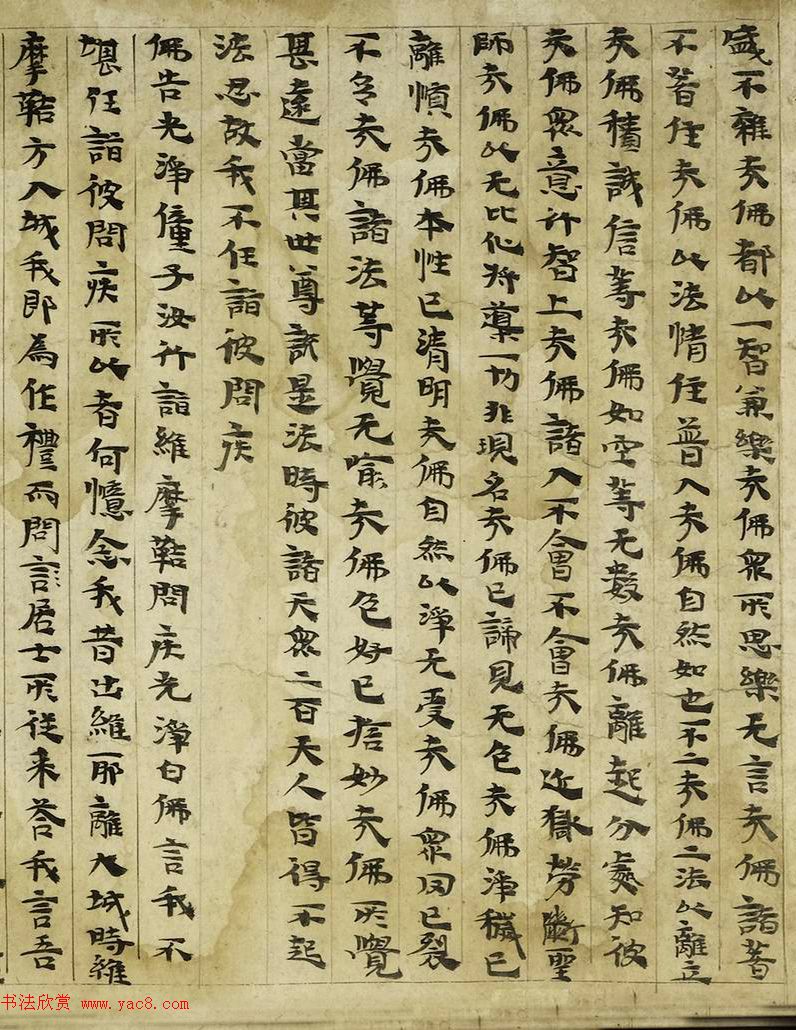 盛不雜夫佛都以一智兼樂夫佛眾所思樂无言夫佛諸著
不著住夫佛以法情住普入夫佛自然如也不二夫佛二法以離立
夫佛積誠信等夫佛如空等无數夫佛離起分處知彼
夫佛眾意行智上夫佛諸入不會不會夫佛近獄勞斷聖
師夫佛以无比化將䆃一切非現名夫佛已諦見无色夫佛淨穢已
離慎夫佛本性已清明夫佛自然以淨无受夫佛眾因已裂
不令夫佛諸法等覺无喻夫佛色好已捨妙夫佛所覺
甚遠當其世尊說是法時彼諸天眾二百天人皆得不起
法忍故我不任詣彼問疾
佛告光淨僮子汝行詣維摩鞊問疾光淨白佛言我不
堪任詣彼問疾所以者何憶念我昔出維耶離大城時維
摩鞊方入城我即為作禮而問言居士所從来荅我言吾
书法欣赏 www.yac8.com